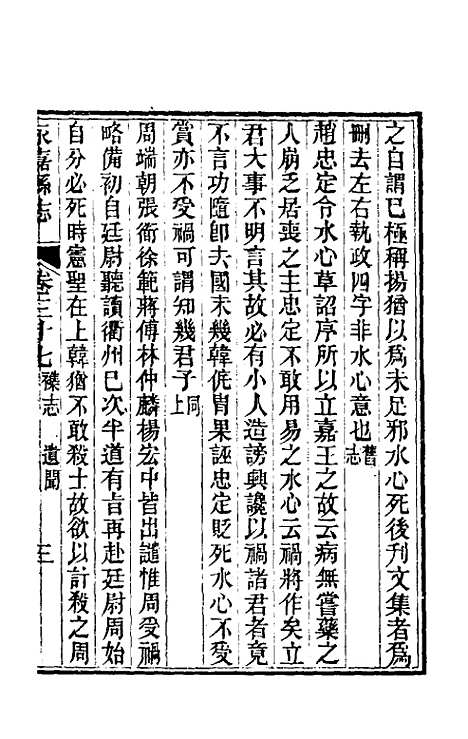 之自謂已極稱揚猶以爲未足邪水心死後刊文集者爲
刪去左右執政四字非水心意也舊志
趙忠定令水心草詔序所以立嘉王之故云病無嘗藥之
人崩乏居喪之主忠定不敢用易之水心云禍將作矣立
君大事不明言其故必有小人造謗興讒以禍諸君者竟
不言功隨卽去國未幾韓侂冑果誣忠定貶死水心不受
賞亦不受禍可謂知幾君子同上
周端朝張衜徐範蔣傅林仲麟楊宏中皆出譴惟周受禍
略備初自廷尉聽讀衢州已次半道有旨再赴廷尉周始
自分必死時憲聖在上韓猶不敢殺士故欲以計殺之周
永嘉縣志 卷三十七 襍志 遺聞 三